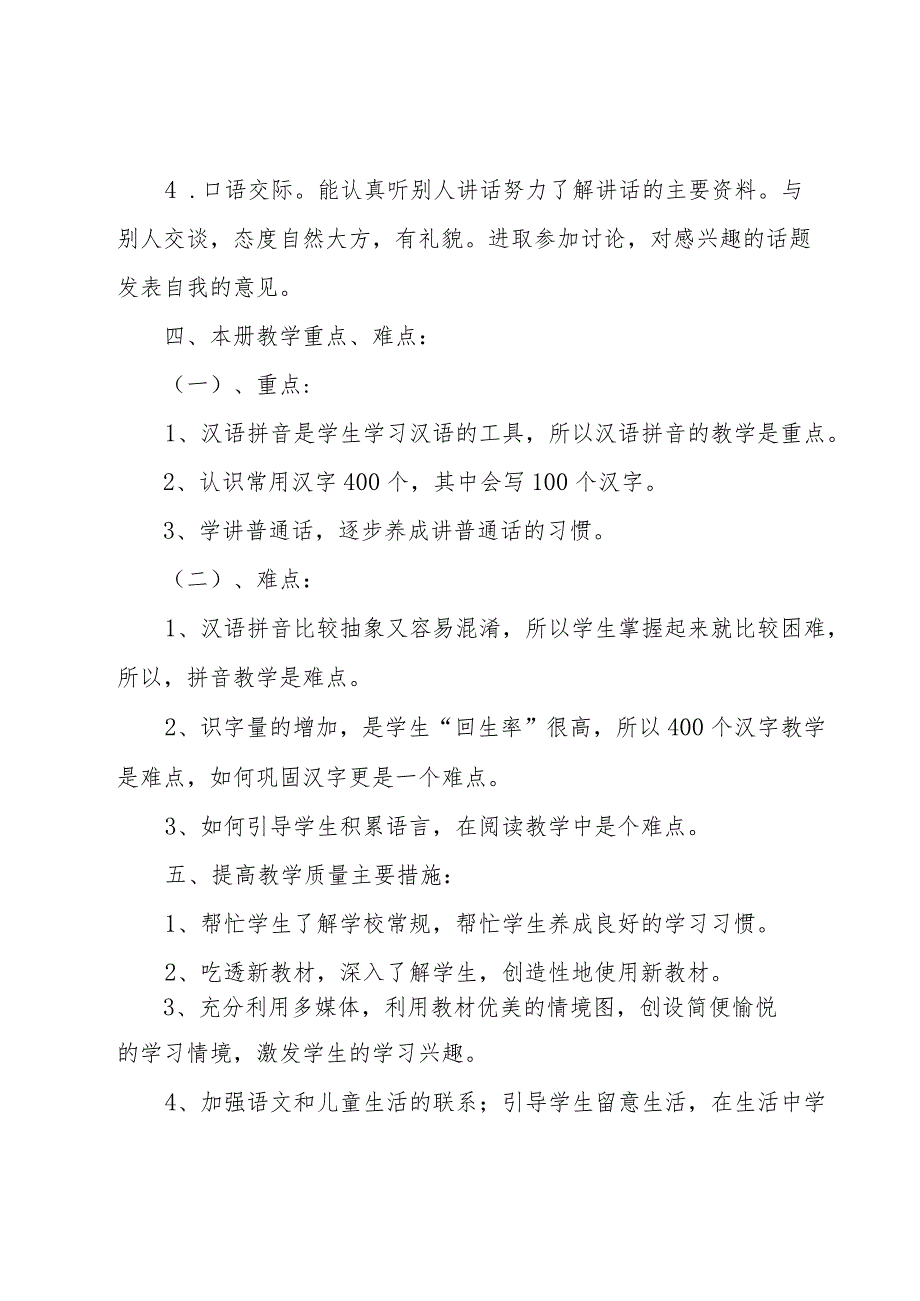 4 .口语交际。能认真听别人讲话努力了解讲话的主要资料。与
别人交谈，态度自然大方，有礼貌。进取参加讨论，对感兴趣的话题
发表自我的意见。
四、本册教学重点、难点：
（一）、重点：
1、汉语拼音是学生学习汉语的工具，所以汉语拼音的教学是重点。
2、认识常用汉字 400 个，其中会写 100 个汉字。
3、学讲普通话，逐步养成讲普通话的习惯。
（二）、难点：
1、汉语拼音比较抽象又容易混淆，所以学生掌握起来就比较困难，
所以，拼音教学是难点。
2、识字量的增加，是学生“回生率”很高，所以 400 个汉字教学
是难点，如何巩固汉字更是一个难点。
3、如何引导学生积累语言，在阅读教学中是个难点。
五、提高教学质量主要措施：
1、帮忙学生了解学校常规，帮忙学生养成良好的学习习惯。
2、吃透新教材，深入了解学生，创造性地使用新教材。
3、充分利用多媒体，利用教材优美的情境图，创设简便愉悦
的学习情境，激发学生的学习兴趣。
4、加强语文和儿童生活的联系；引导学生留意生活，在生活中学